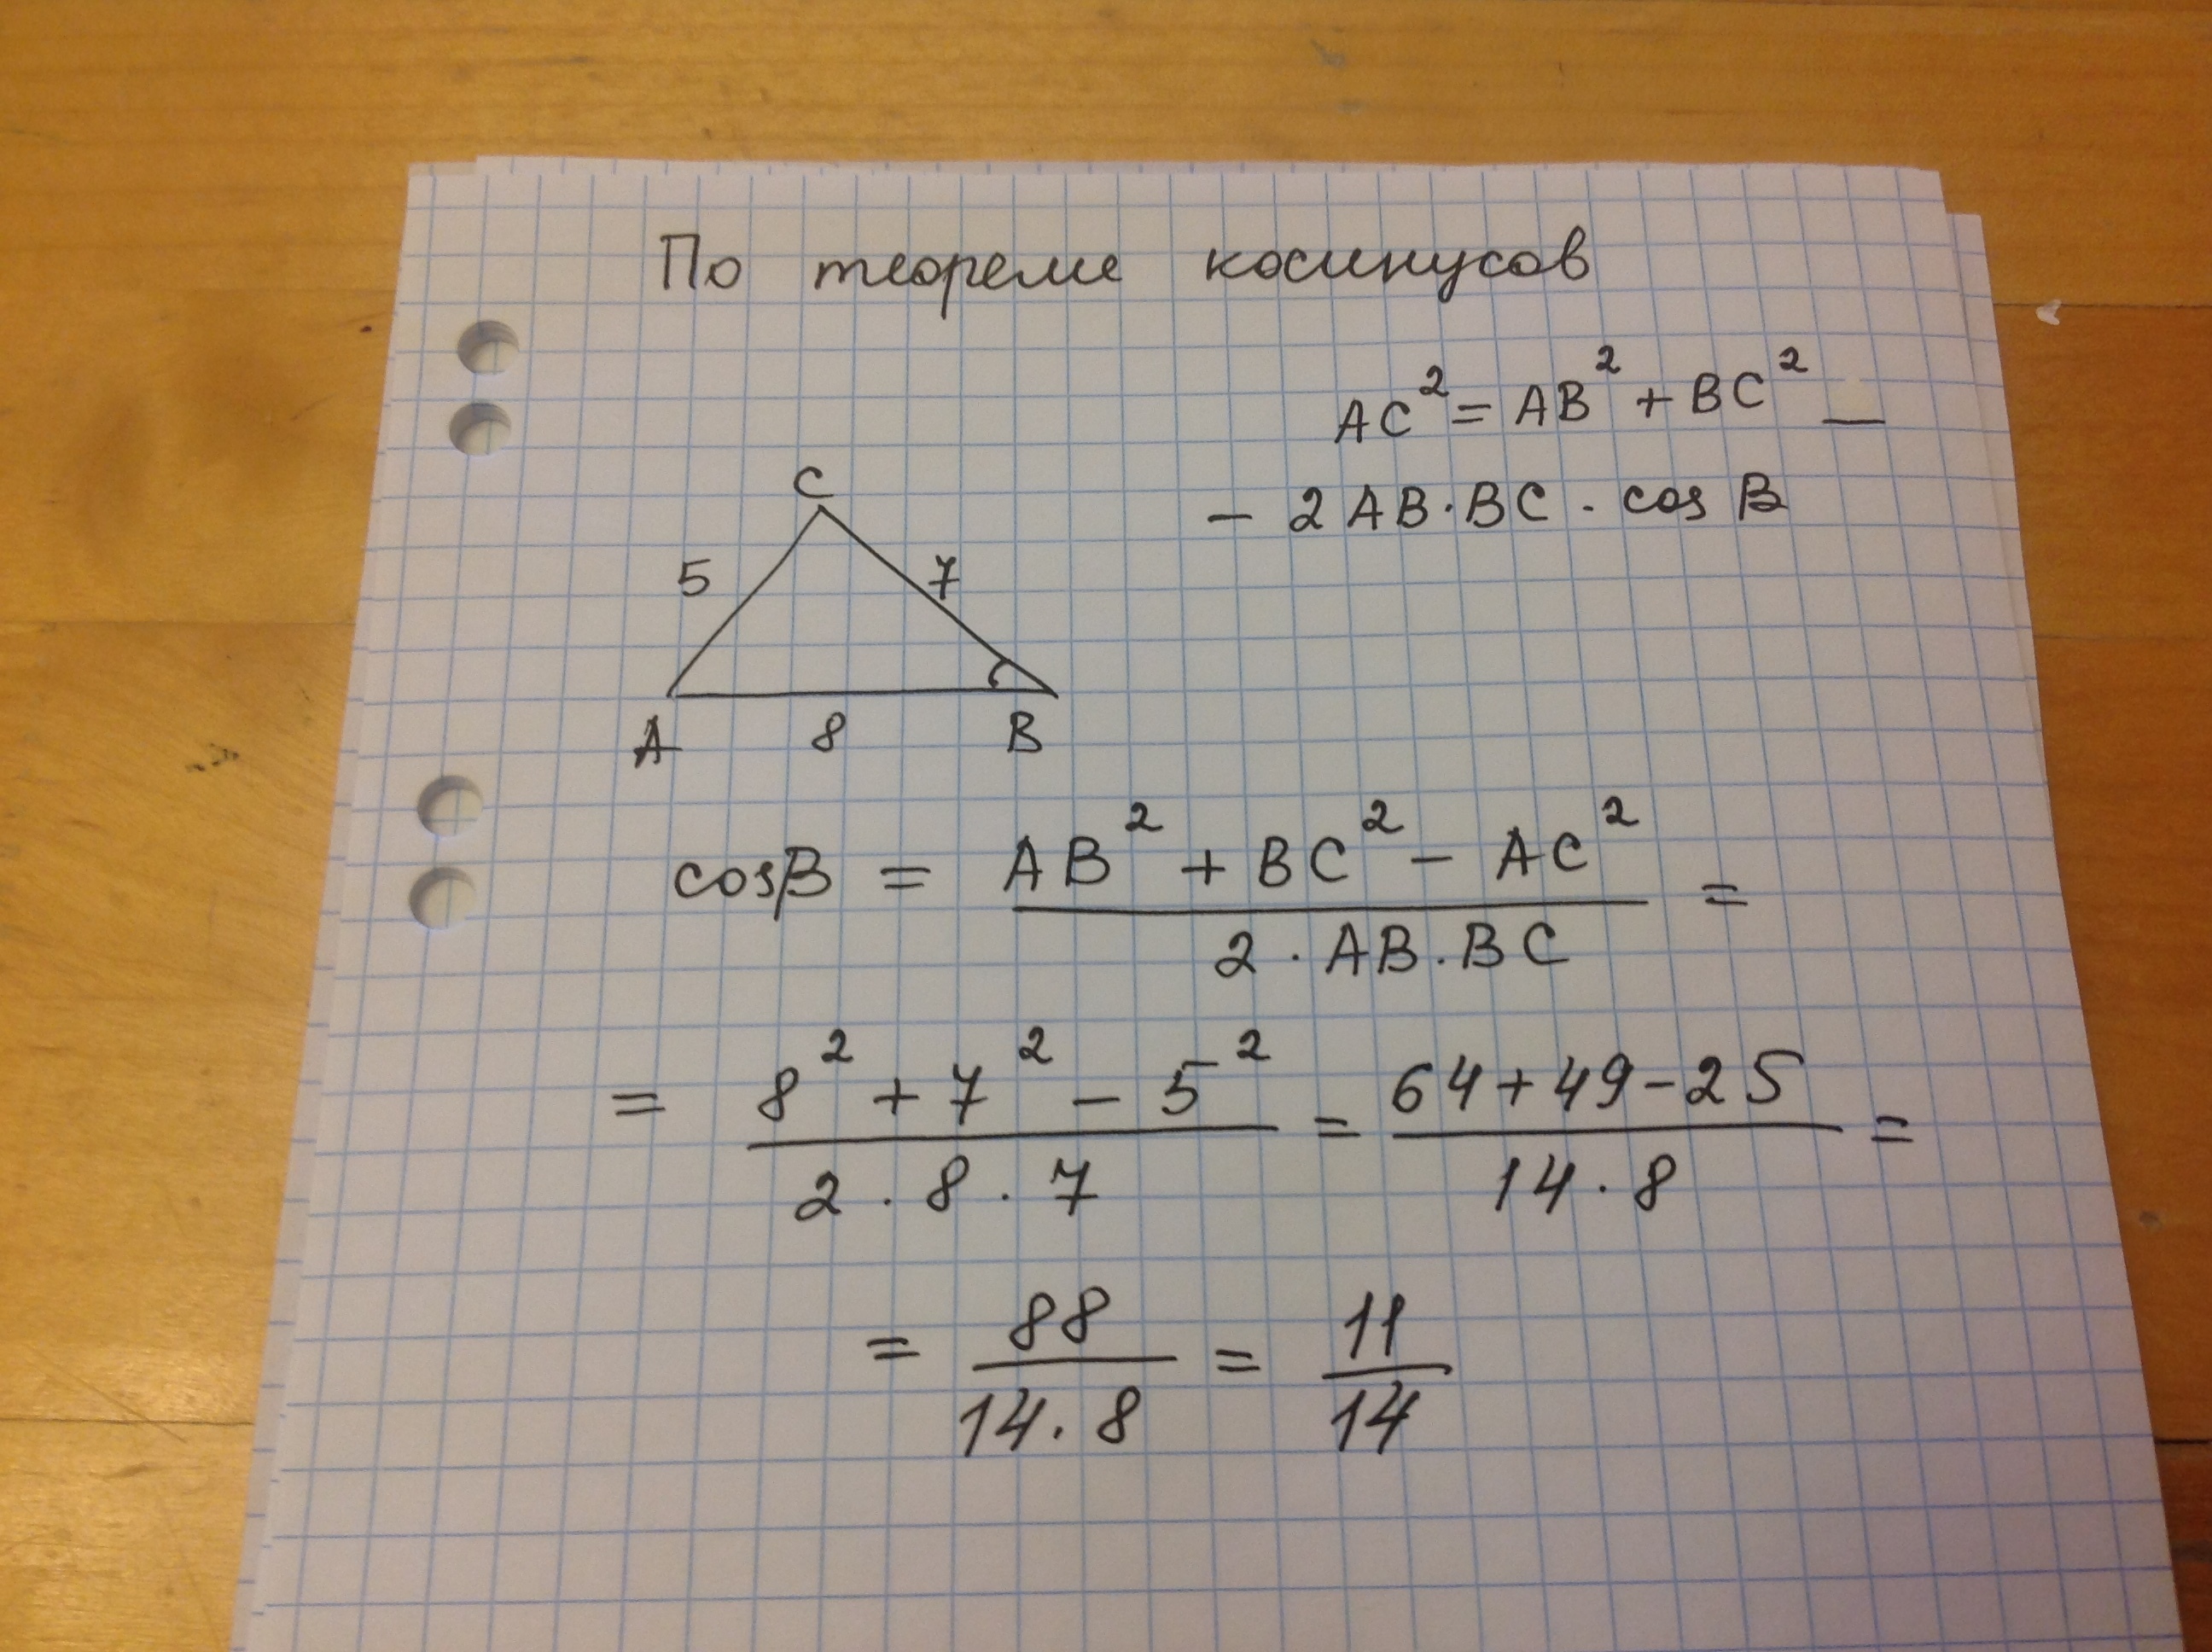 По теореме косинусов
AC² = AB² + BC² —
— 2AB·BC · cos B
C
5 7
A 8 B
cosB = (AB² + BC² − AC²) / (2 · AB · BC) =
= (8² + 7² − 5²) / (2 · 8 · 7) = (64 + 49 − 25) / (14 · 8) =
= 88 / (14 · 8) = 11 / 14